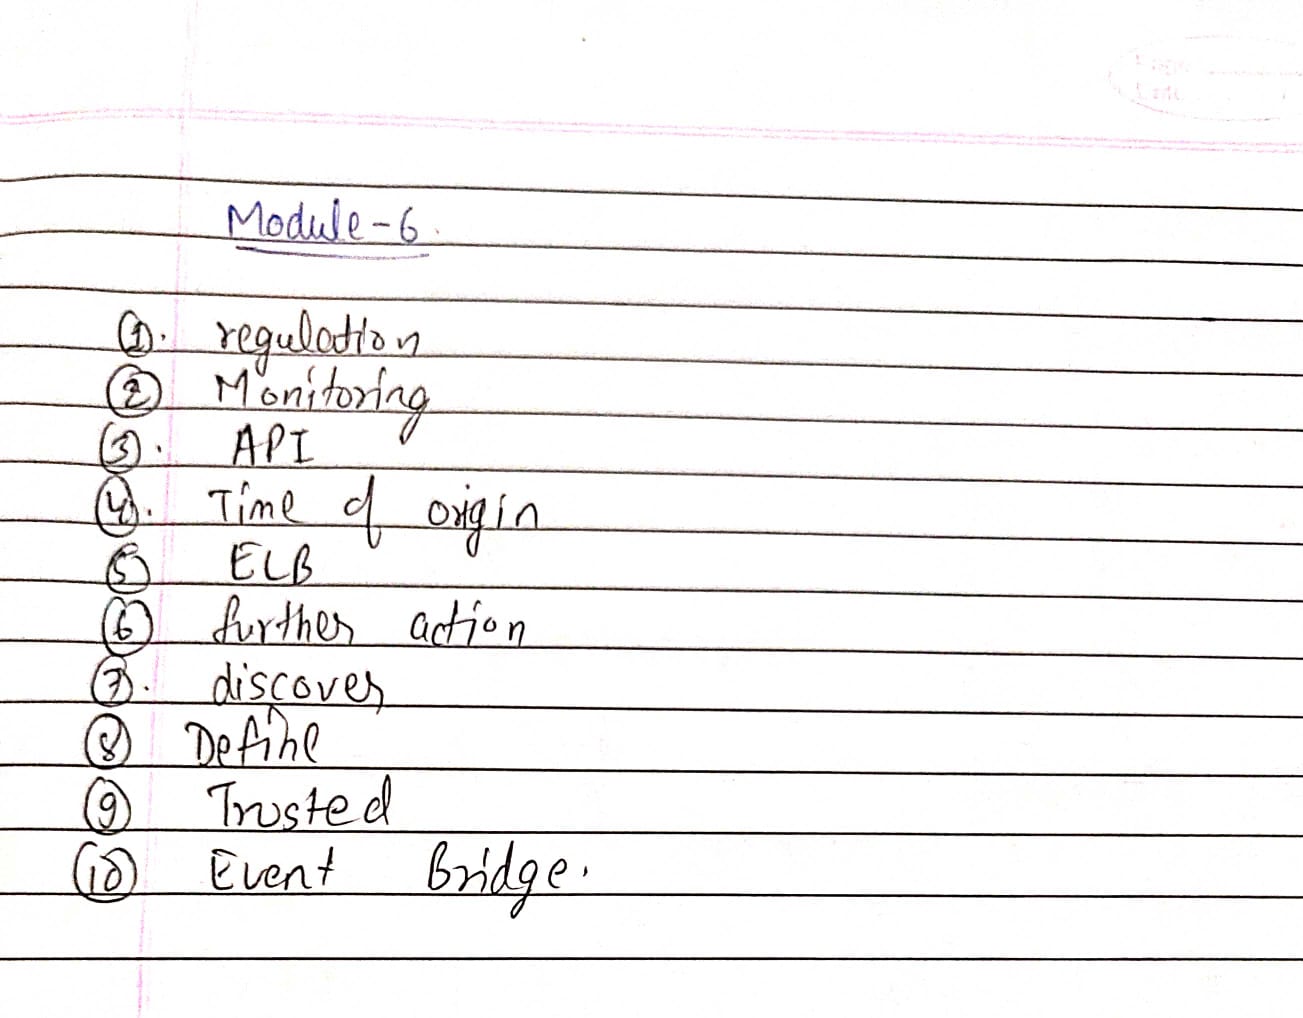 Module-6.
①. regulation
② Monitoring
③. API
④. Time of origin
⑤ ELB
⑥ further action
⑦. discover
⑧ Define
⑨ Trusted
⑩ Event Bridge.